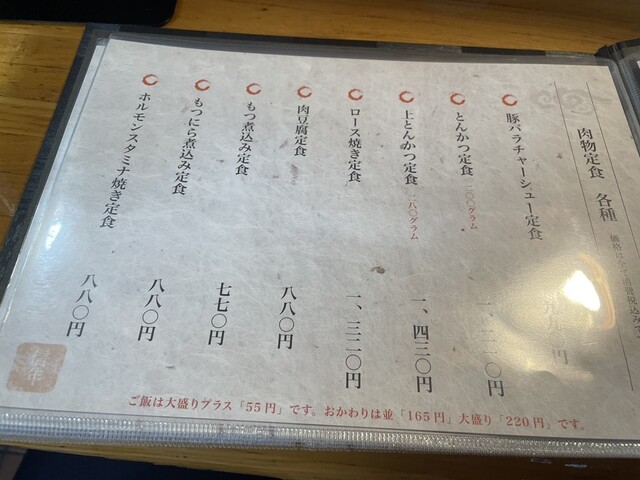 肉物定食 各種
豚バラチャーシュー定食
とんかつ定食
上とんかつ定食 一八〇グラム 一、四三〇円
ロース焼き定食 一、三二〇円
肉豆腐定食 八八〇円
もつ煮込み定食 七七〇円
もつにら煮込み定食 八八〇円
ホルモンスタミナ焼き定食 八八〇円
ご飯は大盛りプラス「55円」です。おかわりは並「165円」大盛り「220円」です。